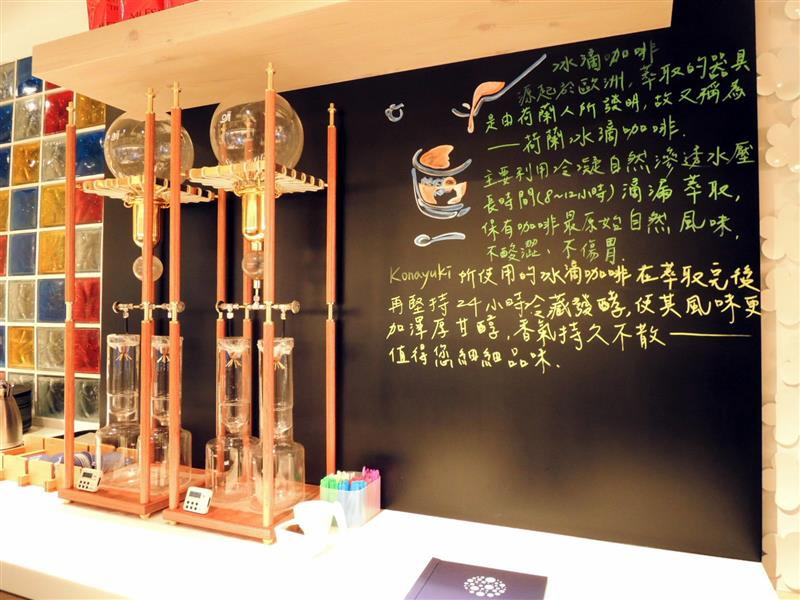 冰滴咖啡
源起於歐洲,萃取的器具
是由荷蘭人所發明,故又稱為
——荷蘭冰滴咖啡.
主要利用冷凝自然滲透水壓
長時間(8~12小時)滴漏萃取,
保有咖啡最原始自然風味,
不酸澀、不傷胃.
Konayuki 所使用的冰滴咖啡在萃取完後
再堅持24小時冷藏發酵,使其風味更
加澤厚甘醇,香氣持久不散———
值得您細細品味.